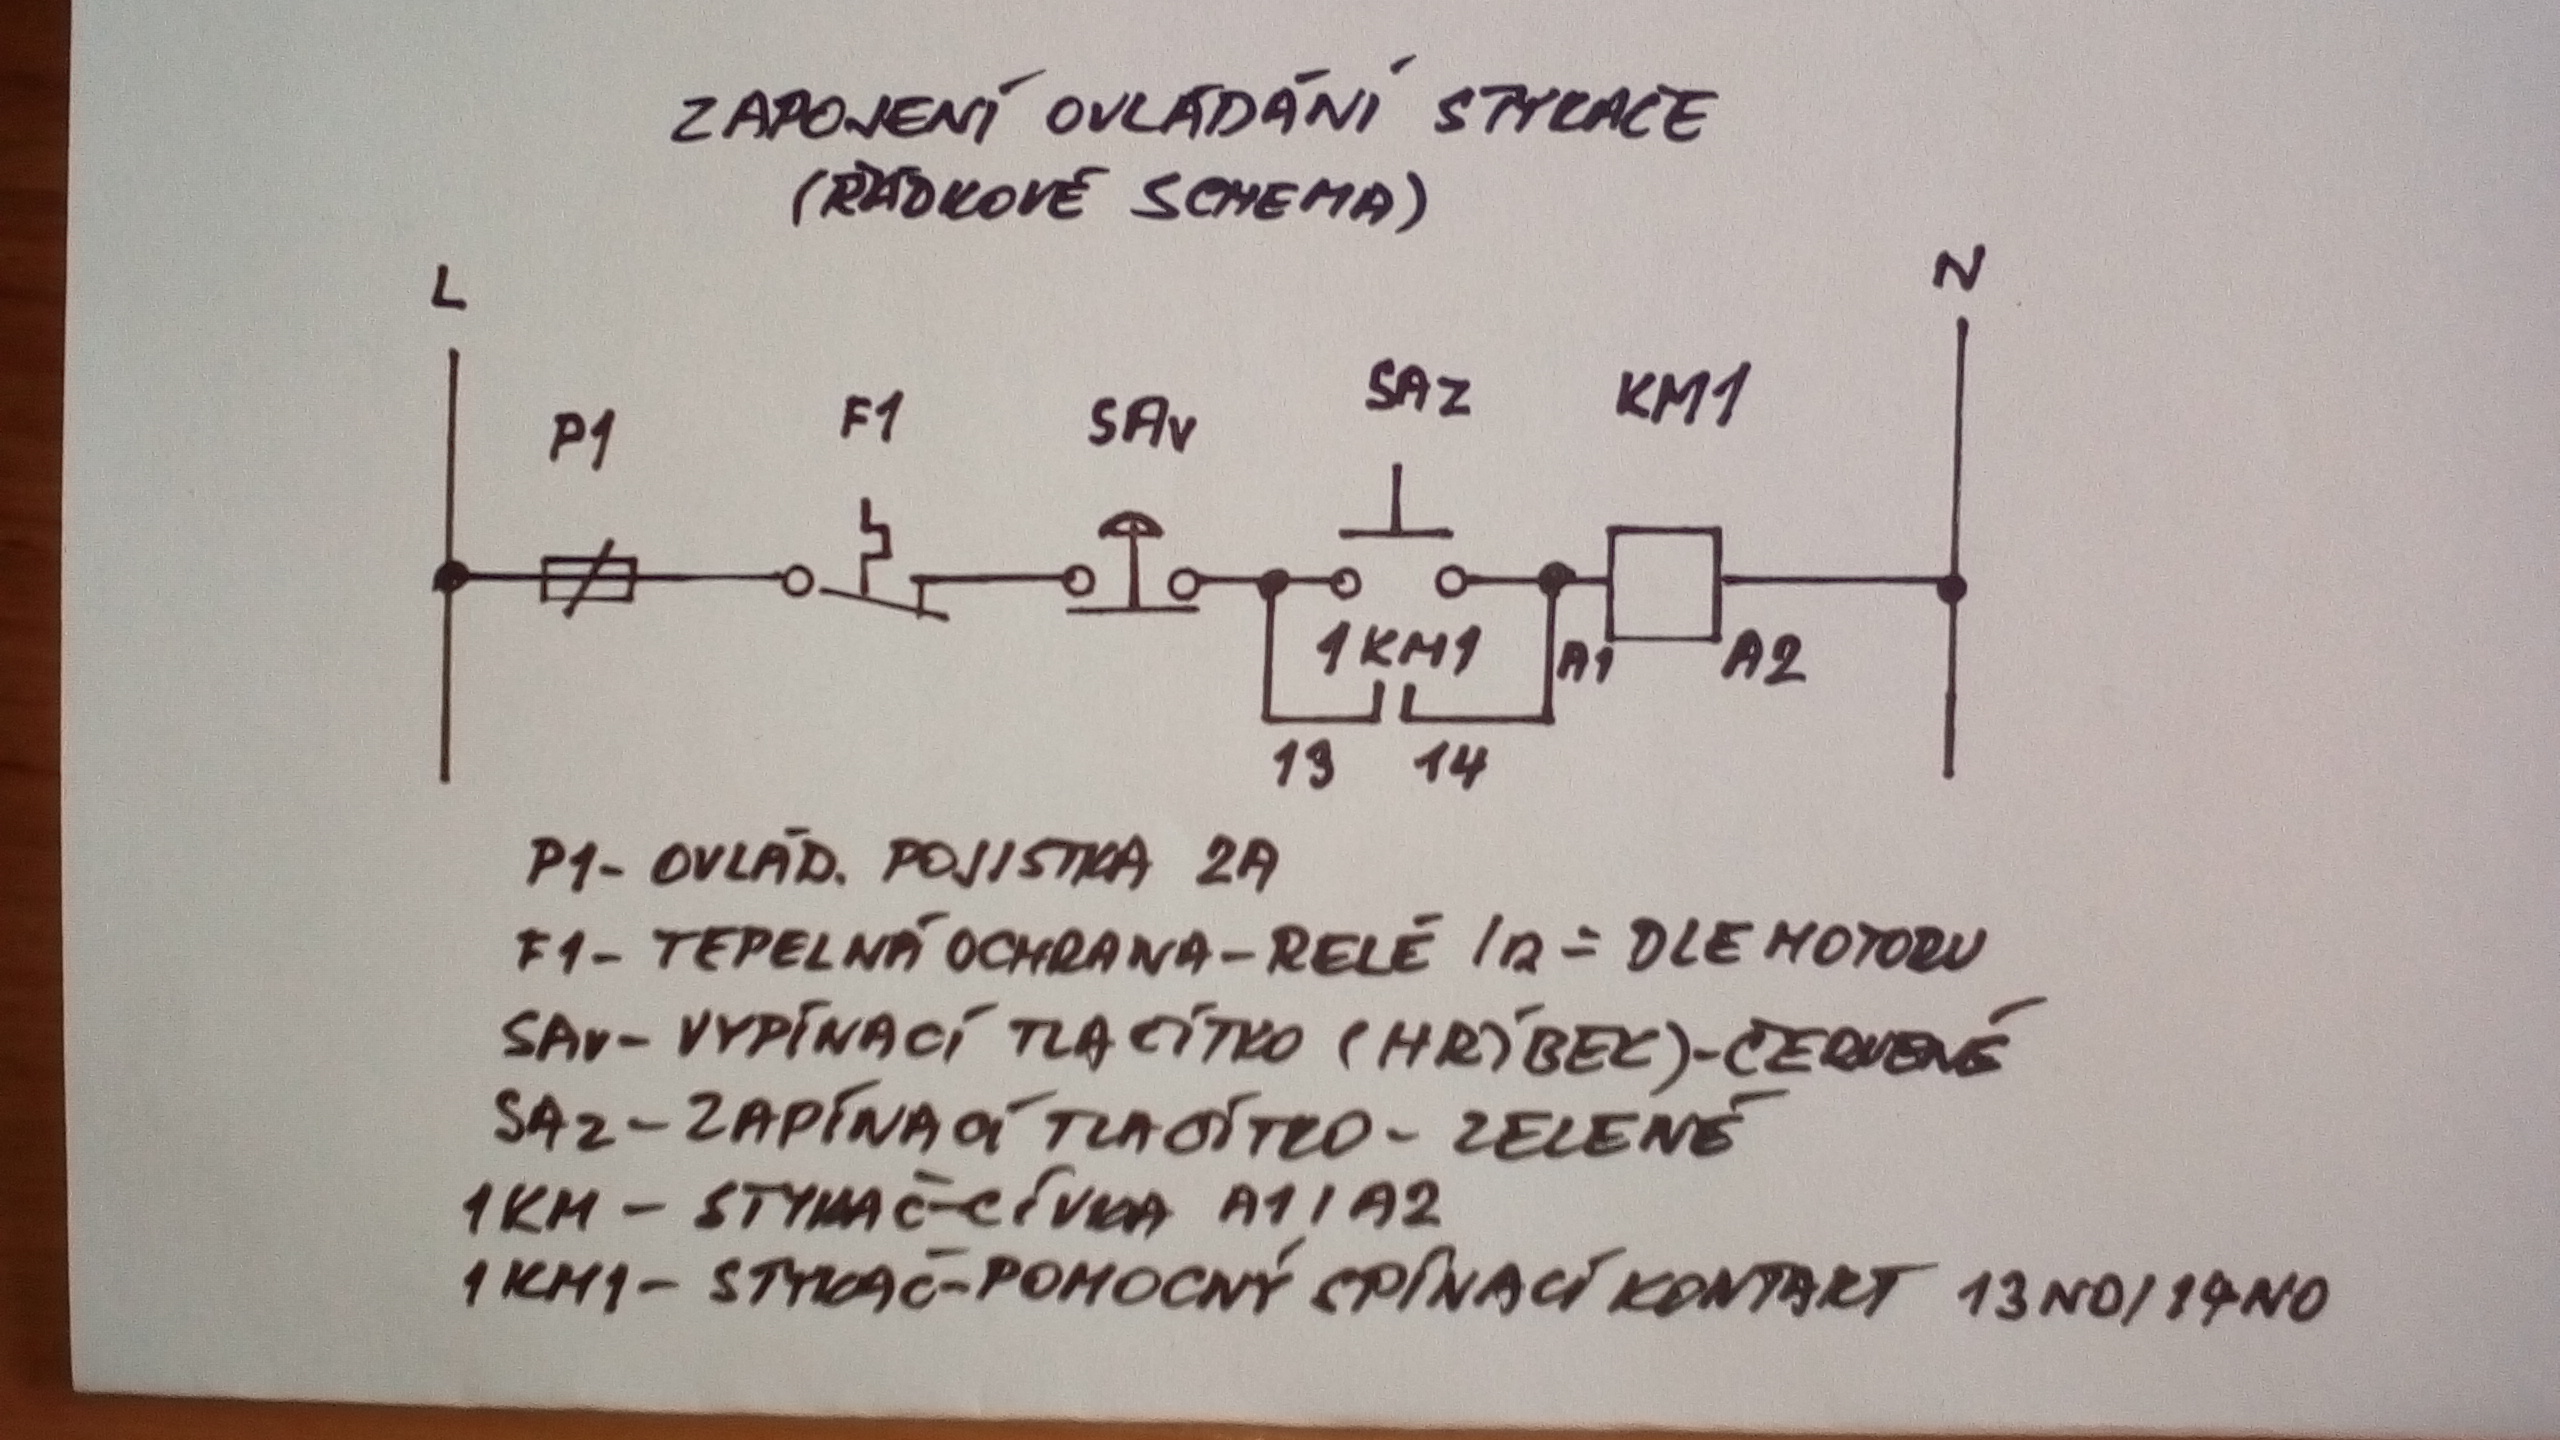 ZAPOJENÍ OVLÁDÁNÍ STYKAČE
(ŘÁDKOVÉ SCHEMA)
L
N
P1
F1
SAV
SAZ
KM1
1KM1
A1
A2
13
14
P1- OVLÁD. POJISTKA 2A
F1- TEPELNÁ OCHRANA-RELÉ In = DLE MOTORU
SAV- VYPÍNACÍ TLAČÍTKO (HŘÍBEK)-ČERVENÉ
SAZ- ZAPÍNACÍ TLAČÍTKO- ZELENÉ
1KM - STYKAČ-CÍVKA A1/A2
1KM1- STYKAČ-POMOCNÝ SPÍNACÍ KONTAKT 13NO/14NO